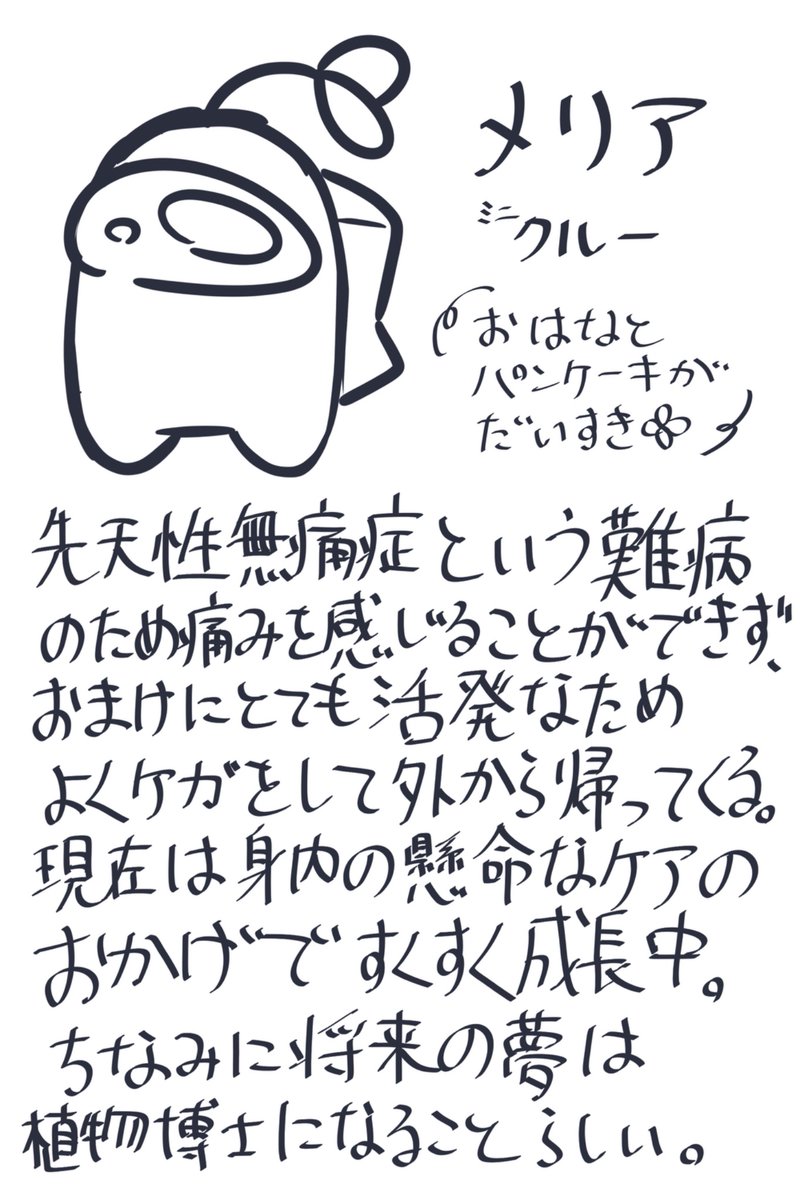 メリア
ミニクルー
おはなと
パンケーキが
だいすき
先天性無痛症という難病
のため痛みを感じることができず、
おまけにとても活発なため
よくケガをして外から帰ってくる。
現在は身内の懸命なケアの
おかげですくすく成長中。
ちなみに将来の夢は
植物博士になることらしい。